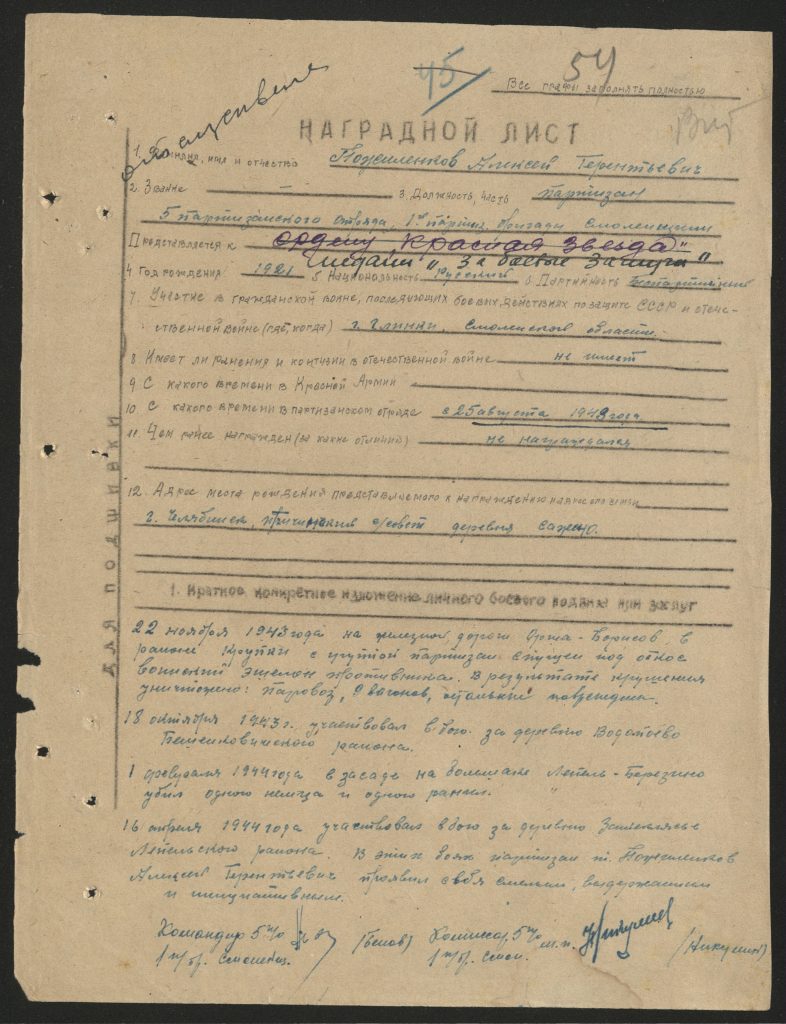 45 54
Все графы заполнять полностью
НАГРАДНОЙ ЛИСТ
1. Фамилия, имя и отчество Пожиленков Алексей Терентьевич
2. Звание — 3. Должность, часть партизан
5 партизанского отряда, 1й партиз. бригады Смоленщины
Представляется к ордену Красная Звезда"
медали "За боевые заслуги"
4. Год рождения 1921 5. Национальность Русский 6. Партийность беспартийный
7. Участие в гражданской войне, последующих боевых действиях по защите СССР и отече-
ственной войне (где, когда) г. Глинки, Смоленской области.
8. Имеет ли ранения и контузии в отечественной войне не имеет
9. С какого времени в Красной Армии
10. С какого времени в партизанском отряде с 25 августа 1943 года
11. Чем ранее награжден (за какие отличия) не награждался
12. Адрес места рождения представляемого к награждению и адрес его семьи
г. Челябинск, с/совет деревня
ДЛЯ ПОДШИВКИ
1. Краткое конкретное изложение личного боевого подвига или заслуг
22 ноября 1943 года на железной дороги Орша-Борисов в
районе Крупки с группой партизан спущен под откос
воинский эшелон противника. В результате крушения
уничтожено: паровоз, 9 вагонов, остальные повреждены.
18 октября 1943 г. участвовал в бою за деревню
Бешенковичского района.
1 февраля 1944 года в засаде на большаке Лепель-Березино
убил одного немца и одного ранил.
16 апреля 1944 года участвовал в бою за деревню
Лепельского района. В этих боях партизан т. Пожиленков
Алексей Терентьевич проявил себя смелым, выдержанным
и инициативным.
Командир 5 п/о (Белов) Комиссар 5 п/о (Никулин)
1 п/бр. Смоленщ. 1 п/бр. Смол.